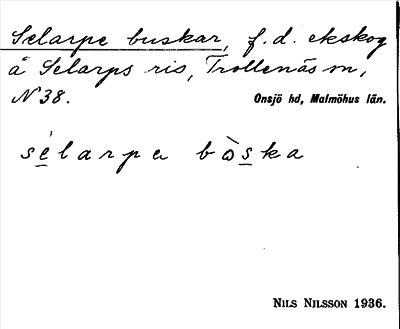 Selarpe buskar, f.d. ekskog
å Selarps ris, Trollenäs sn,
N 38.
Onsjö hd, Malmöhus län.
sèlarpa bòska
NILS NILSSON 1936.